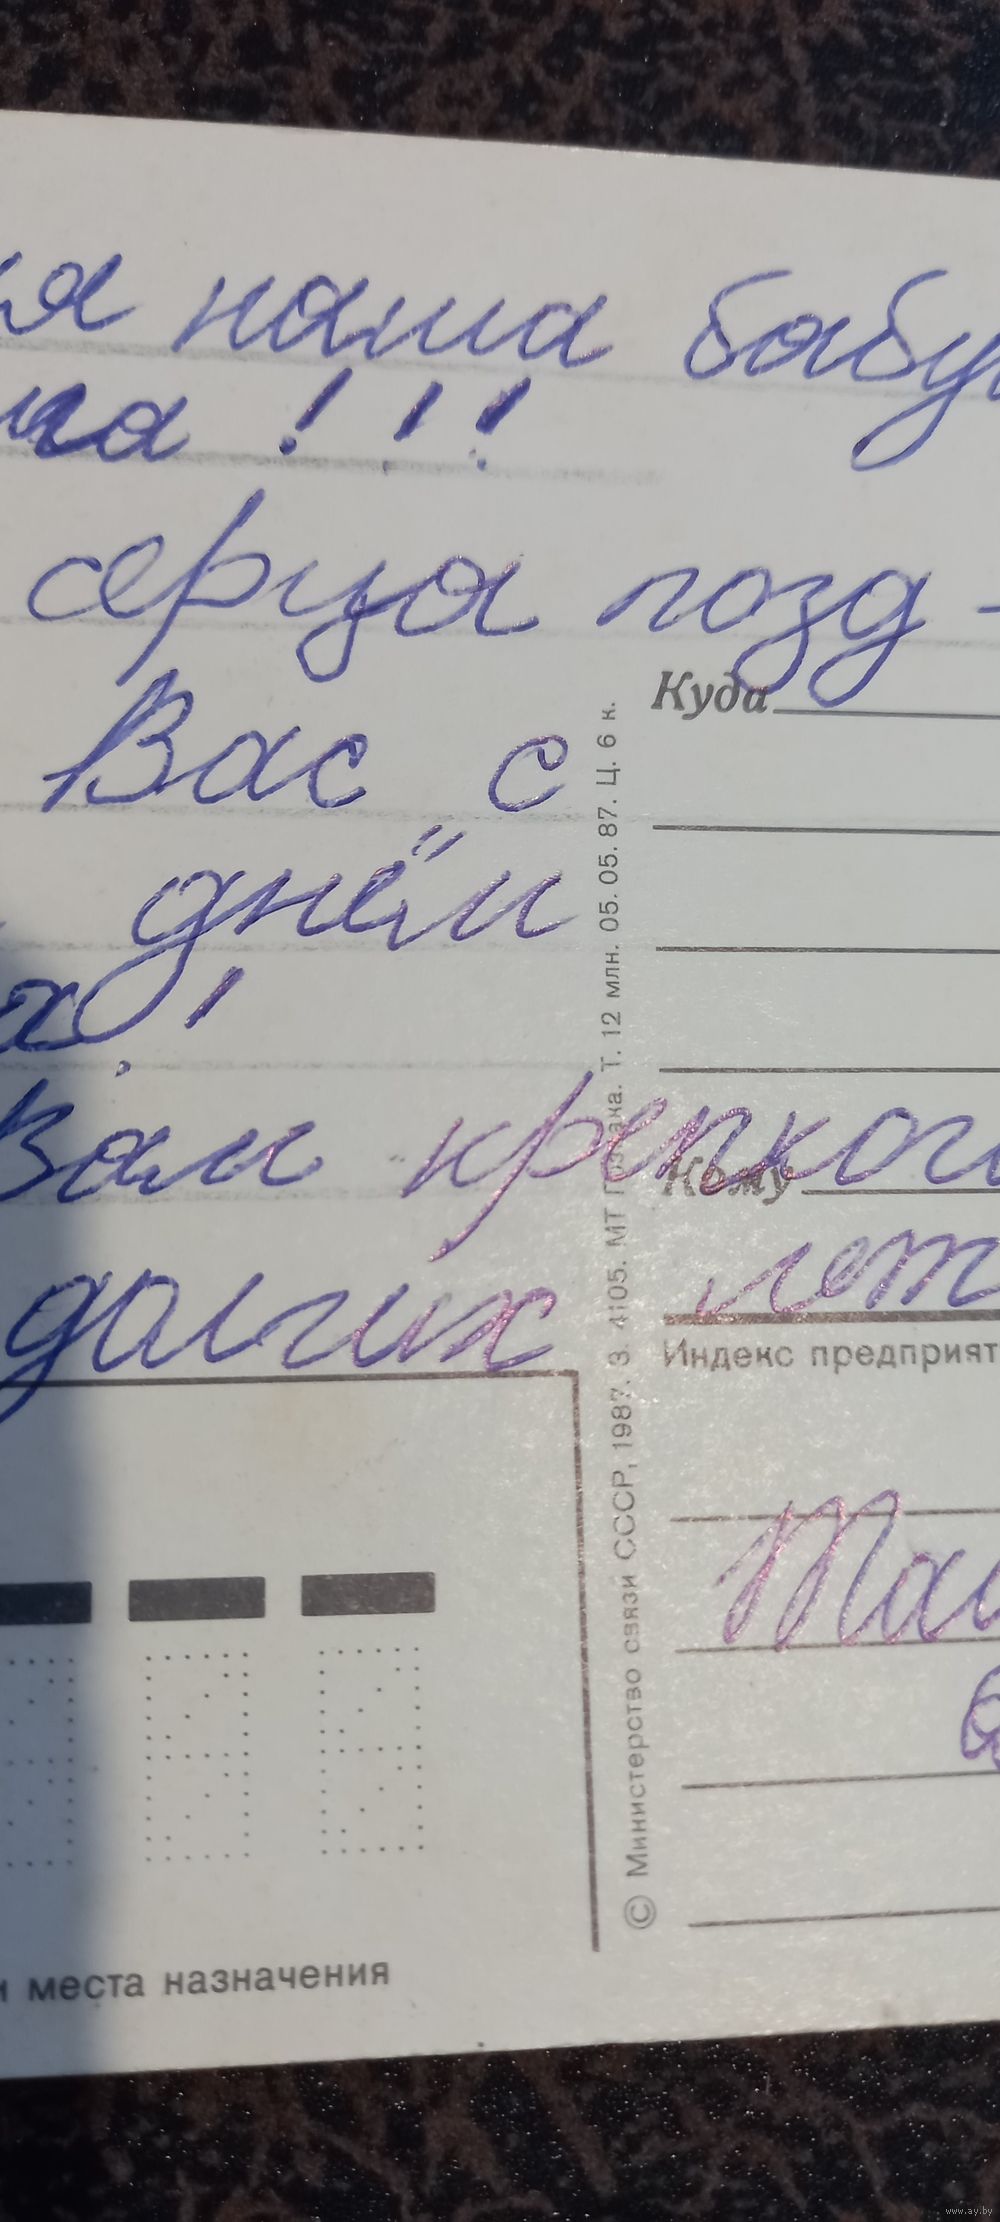 ая наша бабу
ка!!!
серца позд-
Вас с
днём
а!
Вам крепкого
долгих лет
Куда
Кому
Индекс предприят
© Министерство связи СССР, 1987. З. 4105. МТ Гознака. Т. 12 млн. 05. 05. 87. Ц. 6 к.
и места назначения
www.ay.by